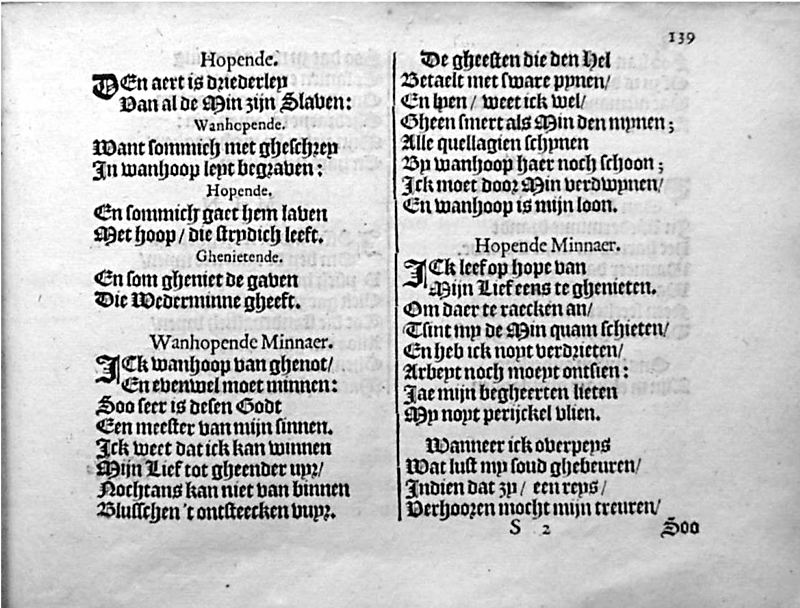 139
Hopende.
DEn aert is driederley
Van al de Min zijn Slaven:
Wanhopende.
Want sommich met gheschrey
In wanhoop leyt begraven:
Hopende.
En sommich gaet hem laven
Met hoop/ die strydich leeft.
Ghenietende.
En som gheniet de gaven
Die Wederminne gheeft.
Wanhopende Minnaer.
ICk wanhoop van ghenot/
En evenwel moet minnen:
Soo seer is desen Godt
Een meester van mijn sinnen.
Ick weet dat ick kan winnen
Mijn Lief tot gheender uyr/
Nochtans kan niet van binnen
Blusschen 't ontsteecken vuyr.
De gheesten die den Hel
Betaelt met sware pynen/
En lyen/ weet ick wel/
Gheen smert als Min den mynen;
Alle quellagien schynen
By wanhoop haer noch schoon;
Ick moet door Min verdwynen/
En wanhoop is mijn loon.
Hopende Minnaer.
ICk leef op hope van
Mijn Lief eens te ghenieten.
Om daer te raecken an/
Tsint my de Min quam schieten/
En heb ick noyt verdrieten/
Arbeyt noch moeyt ontsien:
Jae mijn begheerten lieten
My noyt perijckel vlien.
Wanneer ick overpeys
Wat lust my soud ghebeuren/
Indien dat zy/ een reys/
Verhooren mocht mijn treuren/
S 2 Soo